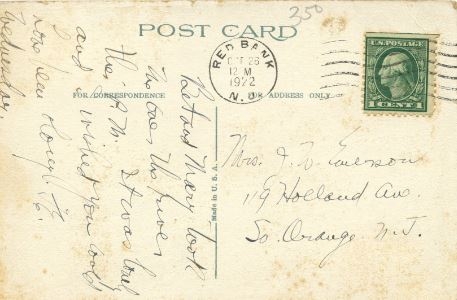 350
POST CARD
RED BANK
OCT 26
12 M
1922
N.J.
U.S. POSTAGE
1 CENT 1
FOR CORRESPONDENCE
FOR ADDRESS ONLY
Made in U.S.A.
Bet and Mary took
me over the river
this P.M. It was lovely
and I wished you could
Wednesday.
Mrs. J. W. Emerson
119 Holland Ave.
So. Orange N.J.